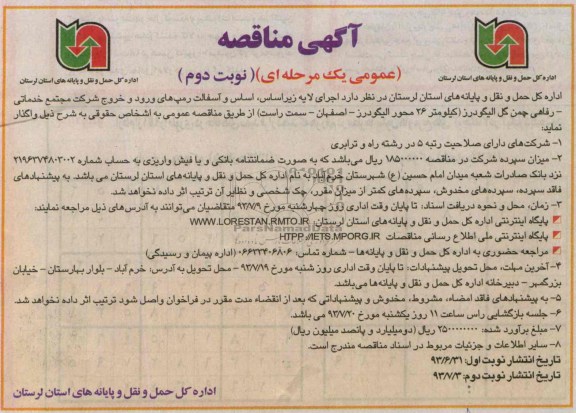 آگهی مناقصه
(عمومی یک مرحله ای)( نوبت دوم )
اداره کل حمل و نقل و پایانه های استان لرستان
اداره کل حمل و نقل و پایانه های استان لرستان
اداره کل حمل و نقل و پایانه‌های استان لرستان در نظر دارد اجرای لایه زیراساس، اساس و آسفالت رمپ‌های ورود و خروج شرکت مجتمع خدماتی
– رفاهی چمن گل الیگودرز (کیلومتر ۲۶ محور الیگودرز – اصفهان – سمت راست) از طریق مناقصه عمومی به اشخاص حقوقی به شرح ذیل واگذار
نماید:
۱– شرکت‌های دارای صلاحیت رتبه ۵ در رشته راه و ترابری
۲– میزان سپرده شرکت در مناقصه ۱۸۵۰۰۰۰۰۰ ریال می‌باشد که به صورت ضمانتنامه بانکی و یا فیش واریزی به حساب شماره ۲۱۹۶۳۷۴۸۰۳۰۰۲
نزد بانک صادرات شعبه میدان امام حسین (ع) شهرستان خرم‌آباد به نام اداره کل حمل و نقل و پایانه‌های استان لرستان می باشد. به پیشنهادهای
فاقد سپرده، سپرده‌های مخدوش، سپرده‌های کمتر از میزان مقرر، چک شخصی و نظایر آن ترتیب اثر داده نخواهد شد.
۳– زمان، محل و نحوه دریافت اسناد: تا پایان وقت اداری روز چهارشنبه مورخ ۹۳/۷/۹ متقاضیان می‌توانند به آدرس‌های ذیل مراجعه نمایند:
پایگاه اینترنتی اداره کل حمل و نقل و پایانه‌های استان لرستان: WWW.LORESTAN.RMTO.IR
ParsNamadData
پایگاه اینترنتی ملی اطلاع رسانی مناقصات HTTP://IETS.MPORG.IR
مراجعه حضوری به اداره کل حمل و نقل و پایانه‌ها – شماره تماس: ۰۶۶۳۳۴۰۶۸۰۶ (اداره پیمان و رسیدگی)
۴– آخرین مهلت، محل تحویل پیشنهادات: تا پایان وقت اداری روز شنبه مورخ ۹۳/۷/۱۹ – محل تحویل به آدرس: خرم آباد – بلوار بهارستان – خیابان
بزرگمهر – دبیرخانه اداره کل حمل و نقل و پایانه‌ها می‌باشد.
۵– به پیشنهادهای فاقد امضاء، مشروط، مخدوش و پیشنهاداتی که بعد از انقضاء مدت مقرر در فراخوان واصل شود ترتیب اثر داده نخواهد شد.
۶– جلسه بازگشایی راس ساعت ۱۱ روز یکشنبه مورخ ۹۳/۷/۲۰ می باشد.
۷– مبلغ برآورد شده: ۲۵۰۰۰۰۰۰۰۰ ریال (دومیلیارد و پانصد میلیون ریال)
۸– سایر اطلاعات و جزئیات مربوط در اسناد مناقصه مندرج است.
تاریخ انتشار نوبت اول: ۹۳/۶/۳۱
تاریخ انتشار نوبت دوم: ۹۳/۷/۳
اداره کل حمل و نقل و پایانه های استان لرستان